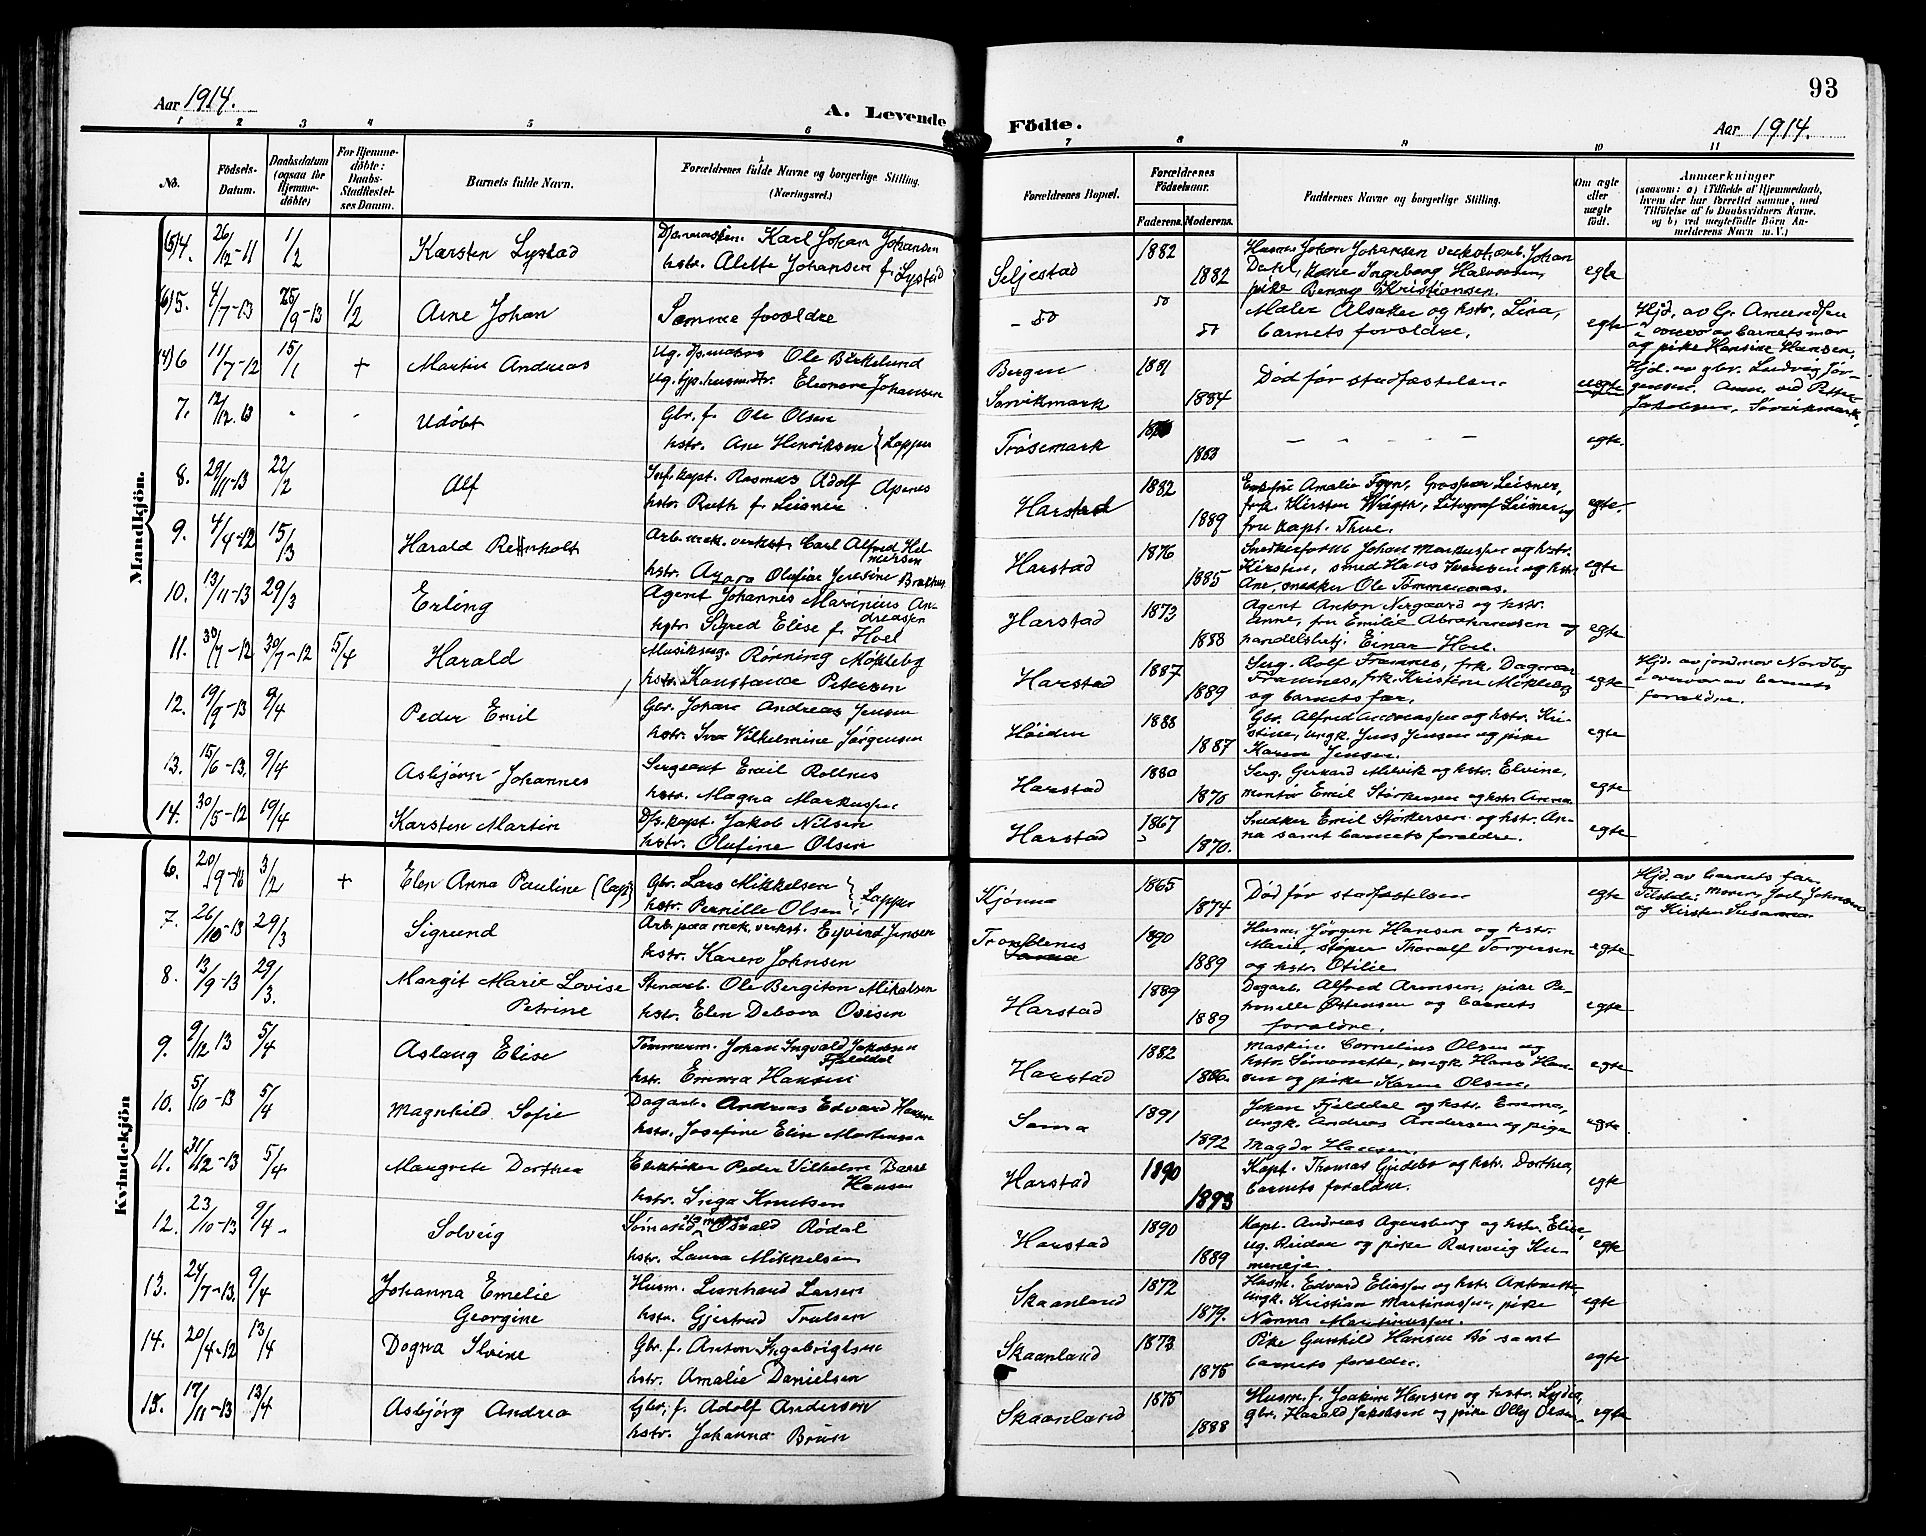 Aar 1914.
A. Levende
Födte.
93
Aar 1914.
1 2 3 4 5 6 7 8 9 10 11
No.
Födsels-
Datum.
Daabsdatum
(ogsaa for
Hjemme-
döbte)
For Hjemme-
döbte:
Daabs-
Stadfæstel-
ses Datum.
Barnets fulde Navn.
Forældrenes fulde Navne og borgerlige Stilling.
(Næringsvei.)
Forældrenes Bopæl.
Forældrenes
Födselsaar.
Faderens. Moderens.
Faddernes Navne og borgerlige Stilling.
Om ægte
eller
uægte
født.
Anmærkninger
(saasom: a) i Tilfælde af Hjemmedaab,
hvem der har forrettet samme, med
Tilföielse af to Daabsvidners Navne,
og b) ved uægtefödte Börn An-
melderens Navn m. V.)
Mandkjön.
(5) 4. 26/12-11 1/2 Karsten Lystad Karl Johan Johansen
hstr. Alette Johansen f. Lystad
Seljestad 1882 1882 Johan Johansen
pike Benny Kristiansen. egte
(6) 5. 4/7-13 25/9-13 1/2 Arne Johan Samme forældre
- so so so Maler Alsaker og hstr. Lina,
barnets forældre. egte Hjd. av G. Amundsen
i overvær av barnets mor
og pike Hansine Hansen.
(4) 6 11/7-12 15/1 + Martin Andreas Ole Birkelund
Eleonore Johansen
Bergen
Sørvikmark 1881 1884 Død før stadfæstelsen. uegte Hjd. av gbr. Ludvig Jør-
gensen. Anm. ved Petter
Jakobsen, Sørvikmark.
7. 12/12.13 - - Udøbt Gbr. f. Ole Olsen
hstr. Ane Henriksen } Lapper
Trøsemark 1883 - - - - - egte.
8. 29/11-13 22/2 Alf Rasmus Adolf Apenes
hstr. Ruth f. Leisner.
Harstad 1882 1889
frk. Kirsten Litograf Leisner og
fru kapt. Thue. egte.
9. 4/4-12 15/3 Harald Reinholt Arb. mek. verkst. Carl Alfred Hel-
mersen
hstr. Azora Olufine Jensine
Harstad 1876 1885 Johan Markussen og hstr.
Kirsten, smed Hans Iversen og hstr.
Ane, snedker Ole Tømmeraas. egte
10. 13/11-13 29/3 Erling Agent Johannes Marinius An-
dreassen
hstr. Sigred Elise f. Hoel
Harstad 1873 1888 Agent Anton Nergaard og hstr.
Anne, fru Emilie Abrahamsen og
handelsbetj. Einar Hoel. egte
11. 30/7-12 30/7-12 5/4 Harald Musikserg. Rønning Møkleby
hstr. Konstance Petersen
Harstad 1887 1889 Serg. Rolf Framnes, frk. Dagmar
Framnes, frk. Kristine Møkleby
og barnets far. egte Hjd. av jordmor Nordby
i overvær av barnets
forældre.
12. 19/9-13 9/4 Peder Emil Gbr. Johan Andreas Jensen
hstr. Iva Vilhelmine Jørgensen
Høiden 1888 1887 Gbr. Alfred Andreassen og hstr. Kri-
stine, ungk. Jens Jensen og pike
Karen Jensen. egte
13. 15/6-13. 9/4 Asbjørn Johannes Sergeant Emil Rollnes
hstr. Magna Markussen
Harstad 1880 1870 Serg. Gerhard Milvik og hstr. Elvine,
montør Emil Størkersen og hstr. Anna egte
14. 30/5-12 19/4 Karsten Martin Ds. kapt. Jakob Nilsen
hstr. Olufine Olsen
Harstad 1867 1870. Snedker Emil Størkersen og hstr. An-
na samt barnets forældre. egte
Kvindekjön
6. 20/9-13 3/2 + Elen Anna Pauline (lap) Gbr. Lars Mikkelsen
hstr. Pernille Olsen } Lapper
Kjønna 1865 1874 Død før stadfæstelsen egte Hjd. av barnets far.
Tilstede: moren, Joel Johnsen
og Kirsten Susanna
7. 26/10-13 29/3 Sigrund Arb. paa mek. verkst. Eyvind Jensen
hstr. Karen Johnsen
Trondenes
1890 1889 Husm. Jørgen Hansen og hstr.
Marie, støper Thoralf Torgersen
og hstr. Otilie egte
8. 13/9-13 29/3. Margit Marie Lovise
Petrine Stenarb. Ole Bergiton Mikalsen
hstr. Elen Debora Osisen
Harstad 1889 1889 Dagarb. Alfred Aronsen, pike Pe-
tronelle Østensen og barnets
forældre. egte
9. 9/12 13 5/4 Aslaug Elise Tømmerm. Johan Ingvald Jakobsen
Fjelddal
hstr. Emma Hansen
Harstad 1882 1886. Maskin. Cornelius Olsen og
hstr. Simonette, ungk. Hans Han-
sen og pike Karen Olsen. egte
10. 5/10-13 5/4 Magnhild Sofie Dagarb. Andreas Edvard Hansen
hstr. Josefine Elise Mortensen
Sama 1891 1892 Johan Fjelddal og hstr. Emma,
ungk. Andreas Andersen og pige
Magda Hansen. egte
11. 31/12-13 5/4 Margrete Dorthea Elektriker Peder Vilhelm Barre
Hansen
hstr. Inga Knutsen
Harstad 1890 1893 Kapt. Thomas Gjedebo og hstr. Dorthea,
barnets forældre. egte
12. 23/10-13 9/4- Solveig Osvald Rødal
hstr. Laura Mikkelsen
Harstad 1890 1889 Kapt. Andreas Agersborg og hstr. Elise,
og pike egte
13. 24/7-13. 9/4 Johanna Emelie
Georgine Husm. Leonhard Larsen
hstr. Gjertrud Trulsen
Skaanland 1872 1879. Husm. Edvard Eliassen og hstr. Antonette
ungk. Kristian Martinussen, pike
Nanna Martinussen. egte
14. 20/4-12 13/4 Dogna Ilvine Gbr. f. Anton Ingebrigtsen
hstr. Amalie Danielsen
Skaanland 1873 1875 Pike Gunhild Hansen Bø samt
barnets forældre. egte
15. 17/11-13 13/4 Asbjørg Andrea Gbr. f. Adolf Andersen
hstr. Johanna Bruun
Skaanland 1875 1888 Husm. f. Joakim Hansen og hstr. Lydia,
gbr. Harald Jakobsen og pike Olly Olsen. egte